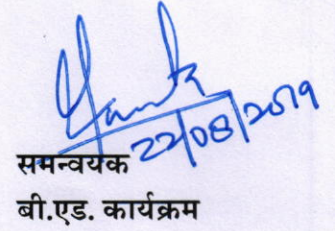 22/08/2019
समन्वयक
बी.एड. कार्यक्रम